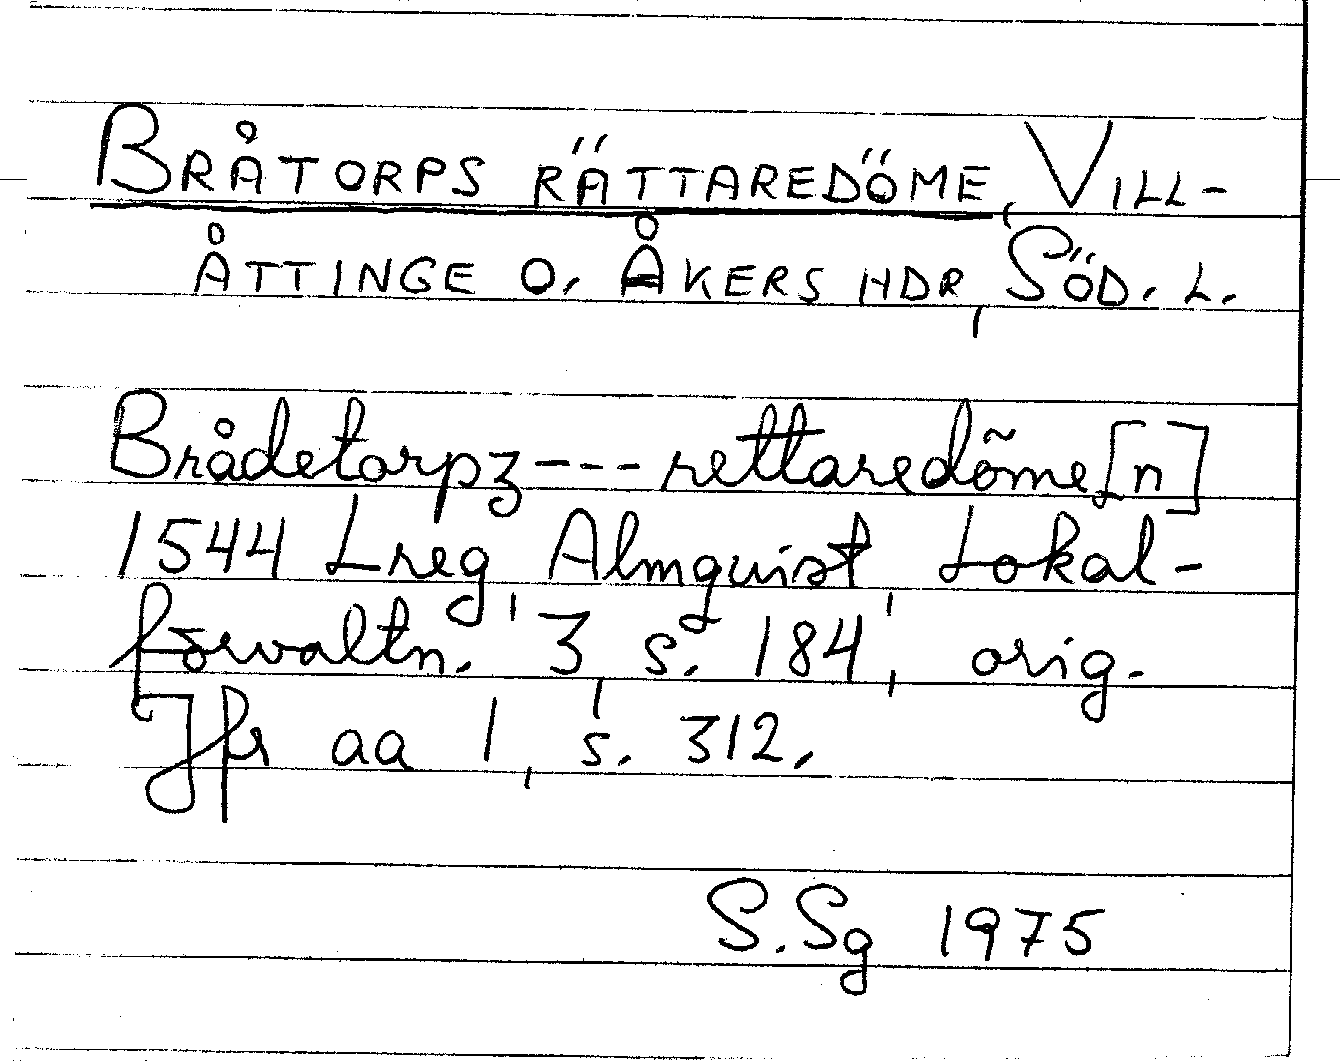 BRÅTORPS RÄTTAREDÖME, VILL-
ÅTTINGE O. ÅKERS HDR, SÖD. L.
Brådetorpz---rettaredõme[n]
1544 Lreg Almquist, Lokal-
förvaltn. 3 s. 184, orig.
Jfr aa 1, s. 312.
S.Sg 1975